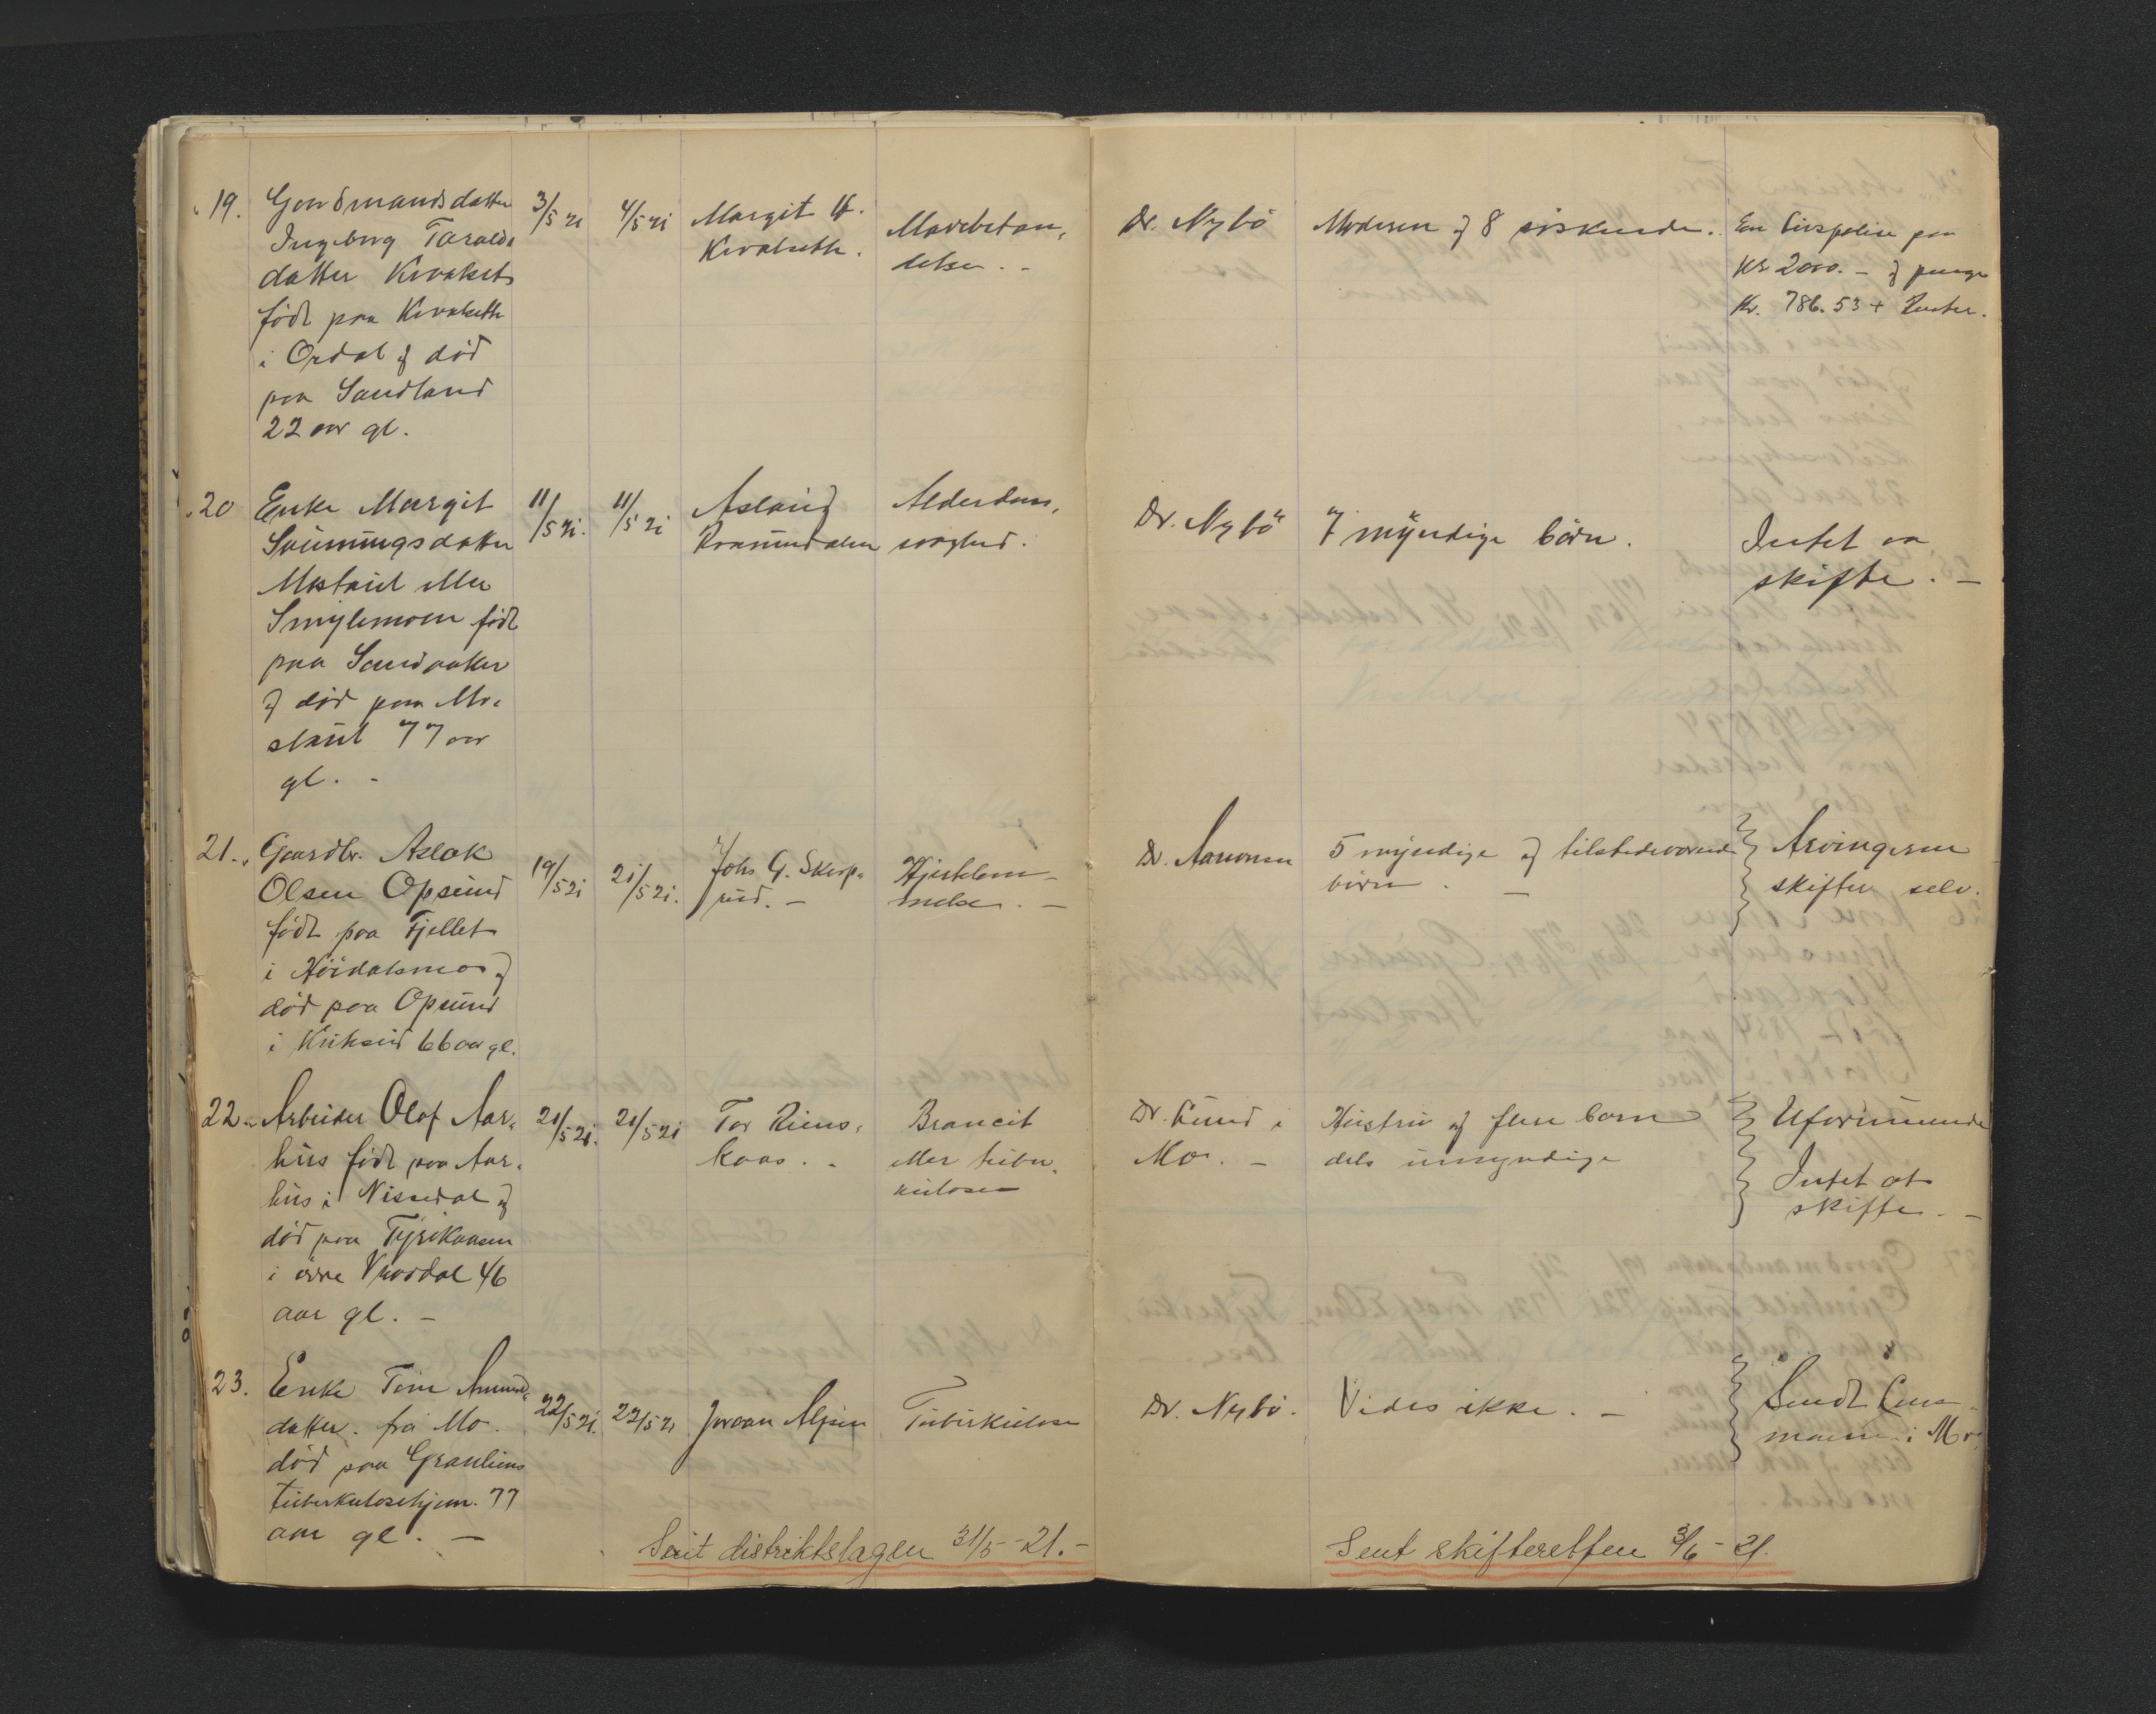 19.
Gaardmandsdatter
Ingeborg Taralds
datter Kivalset
født paa Kivalseth
i Ordal og død
paa Sandland
22 aar gl.
3/5 21
4/5 21
Margit
Kivalseth.
Mavebetæn,
delse. -
Dr. Nybö
Moderen og 8 söskende.
En Livspolise paa
Kr 2000.- og penge
Kr. 786.53 + Renter.
20
Enke Margit
Sveinungsdatter
Mostaul eller
Smylemoen født
paa Sandaaker
og død paa Mo-
staul 77 aar
gl. -
11/5 21.
11/5 21
Aslaug
Kromdalen
Alderdoms,
svaghed.
Dr. Nybö
7 myndige börn.
Intet aa
skifte. -
21.
Gaardbr. Aslak
Olsen Opsund
født paa Fjellet
i Höidalsmo og
død paa Opsund
i Kviteseid 66 aar gl.
19/5 21
21/5 21.
Johs G. Skerp-
rud. -
Hjertelam-
melse. -
Dr. Aanonsen
5 myndige og tilstedeværende
börn. -
Arvingerne
skifter selv.
22.
Arbeider Olaf Aar-
hus født paa Aar-
hus i Nissedal og
död paa Tyrikaasen
i övre Vraadal 46
aar gl. -
21/5 21.
21/5 21
Tor Riens,
kaas. -
Broncit
eller tuber-
kulose
Dr. Lund i
Mo. -
Hustru og flere barn
dels umyndige
Uformuende
Intet at
skifte. -
23.
Enke Tone Aamund-
datter. fra Mo.
död paa Granliens
tuberkulosehjem. 77
aar gl. -
22/5 21.
22/5 21
Joraan Aljsen
Tuberkulose
Dr. Nybö.
Vides ikke. -
Sendt Lens-
mann i Mo.
Sent distriktslægen 31/5-21.-
Sent skifteretten 3/6-21.